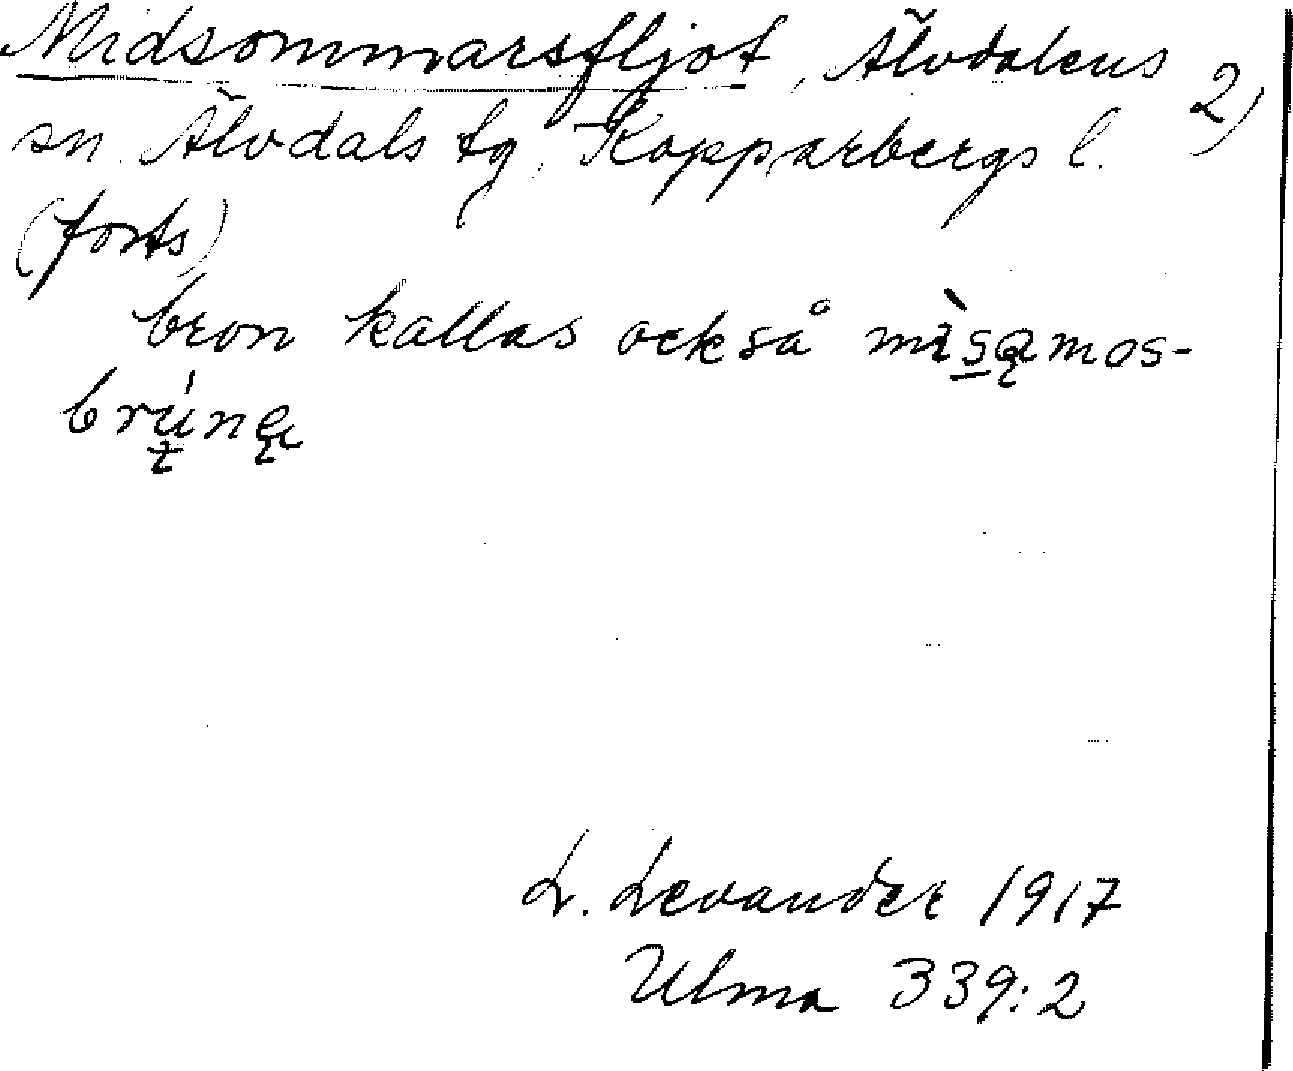 Midsommarsfljot, Älvdalens 2)
sn. Älvdals tg, Kopparbergs l.
(forts)
bron kallas också mìsąmos-
brų́nę
L. Levander 1917
Ulma 339:2